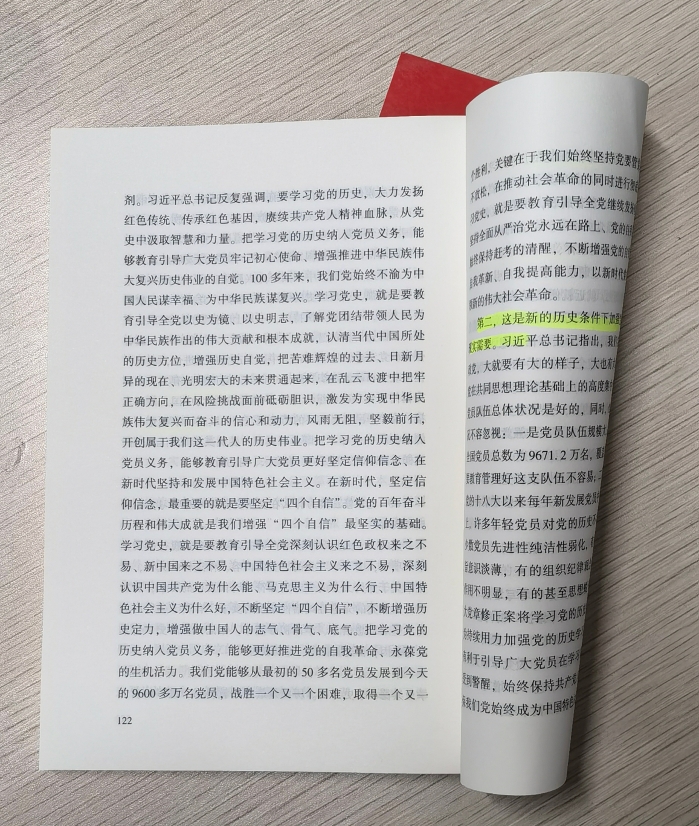 剂。习近平总书记反复强调，要学习党的历史，大力发扬
红色传统、传承红色基因，赓续共产党人精神血脉，从党
史中汲取智慧和力量。把学习党的历史纳入党员义务，能
够教育引导广大党员牢记初心使命、增强推进中华民族伟
大复兴历史伟业的自觉。100多年来，我们党始终不渝为中
国人民谋幸福、为中华民族谋复兴。学习党史，就是要教
育引导全党以史为镜、以史明志，了解党团结带领人民为
中华民族作出的伟大贡献和根本成就，认清当代中国所处
的历史方位，增强历史自觉，把苦难辉煌的过去、日新月
异的现在、光明宏大的未来贯通起来，在乱云飞渡中把牢
正确方向，在风险挑战面前砥砺胆识，激发为实现中华民
族伟大复兴而奋斗的信心和动力，风雨无阻，坚毅前行，
开创属于我们这一代人的历史伟业。把学习党的历史纳入
党员义务，能够教育引导广大党员更好坚定信仰信念、在
新时代坚持和发展中国特色社会主义。在新时代，坚定信
仰信念，最重要的就是要坚定“四个自信”。党的百年奋斗
历程和伟大成就是我们增强“四个自信”最坚实的基础。
学习党史，就是要教育引导全党深刻认识红色政权来之不
易、新中国来之不易、中国特色社会主义来之不易，深刻
认识中国共产党为什么能、马克思主义为什么行、中国特
色社会主义为什么好，不断坚定“四个自信”，不断增强历
史定力，增强做中国人的志气、骨气、底气。把学习党的
历史纳入党员义务，能够更好推进党的自我革命、永葆党
的生机活力。我们党能够从最初的50多名党员发展到今天
的9600多万名党员，战胜一个又一个困难，取得一个又一
122
个胜利，关键在于我们始终坚持党要管
不放松，在推动社会革命的同时进行
习党史，就是要教育引导全党继续发扬
坚持全面从严治党永远在路上、党的自
始终保持赶考的清醒，不断增强党的自
自我革新、自我提高能力，以新时代
领新的伟大社会革命。
第二，这是新的历史条件下加强
现实需要。习近平总书记指出，我们
党，大就要有大的样子，大也
在共同思想理论基础上的高度集
党员队伍总体状况是好的，同时，
不容忽视：一是党员队伍规模大
全国党员总数为9671.2万名，
教育管理好这支队伍不容易；二
党的十八大以来每年新发展党员
许多年轻党员对党的历史
少数党员先进性纯洁性弱化，有
意识淡薄，有的组织纪律
作用不明显，有的甚至思想
大党章修正案将学习党的历史
持续用力加强党的历史学
有利于引导广大党员在学习
到警醒，始终保持共产党
我们党始终成为中国特色